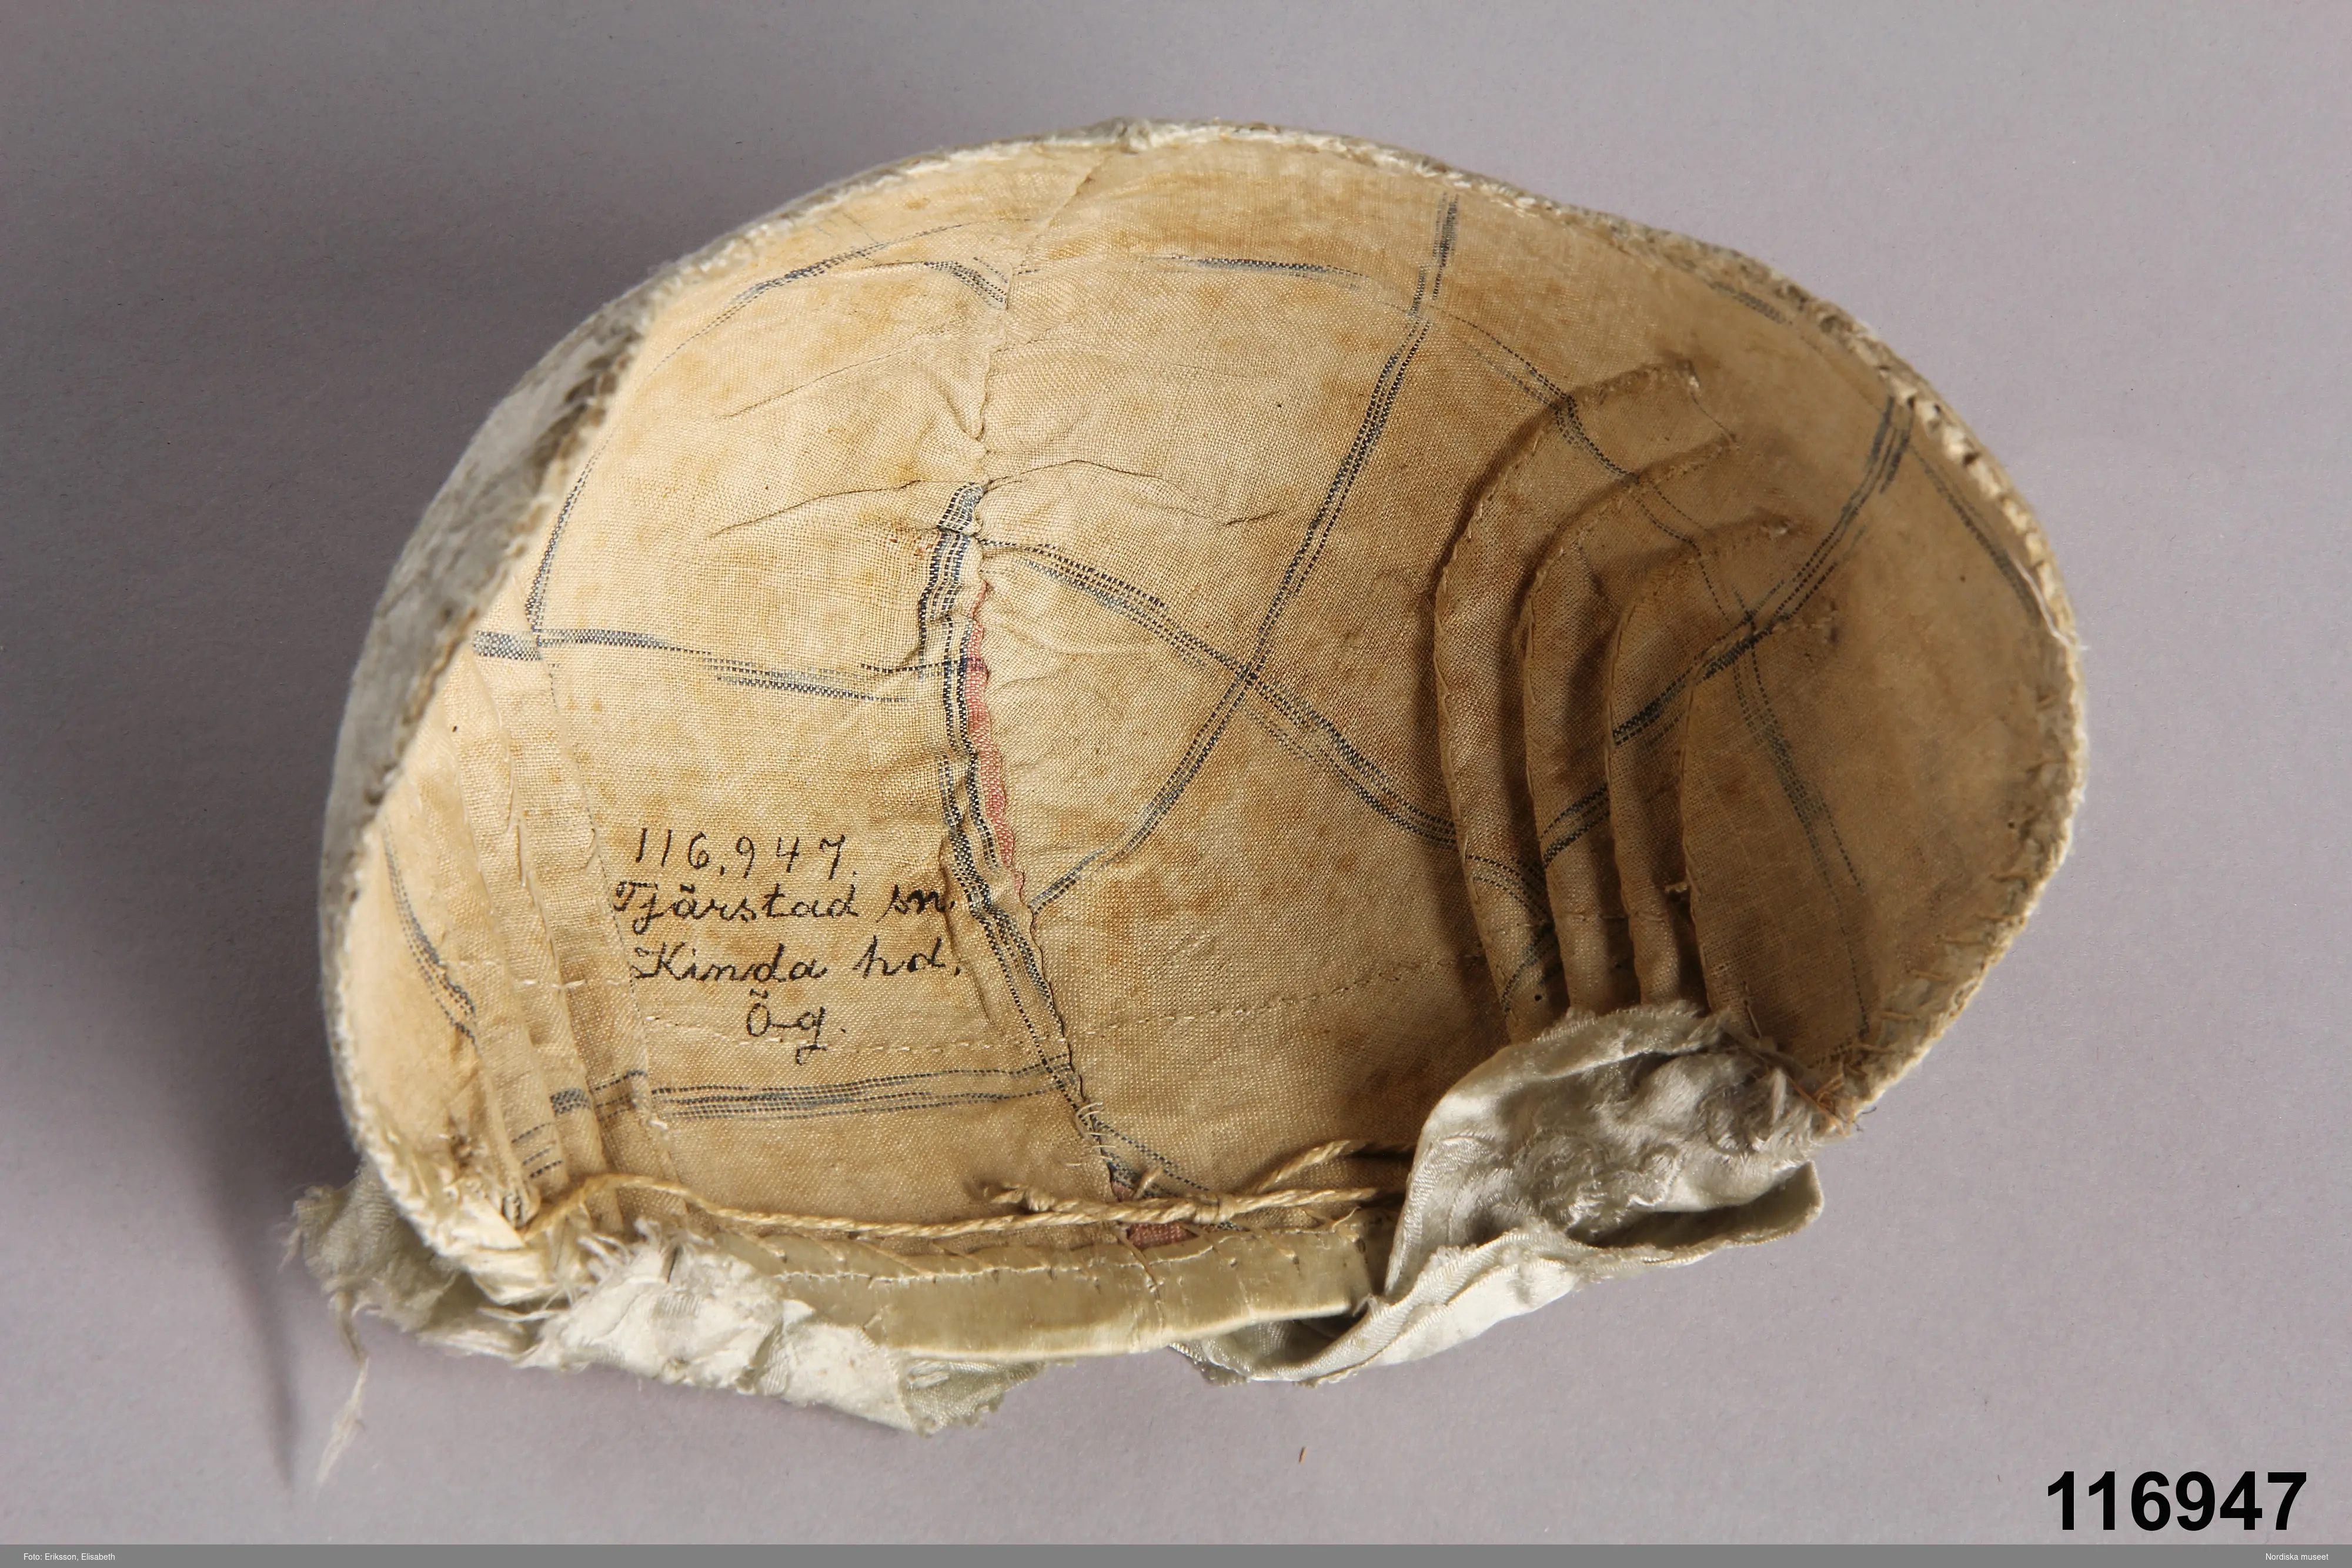 116,947.
Tjärstad sn.
Kinda hd.
Ög.
116947
Foto: Eriksson, Elisabeth
Nordiska museet